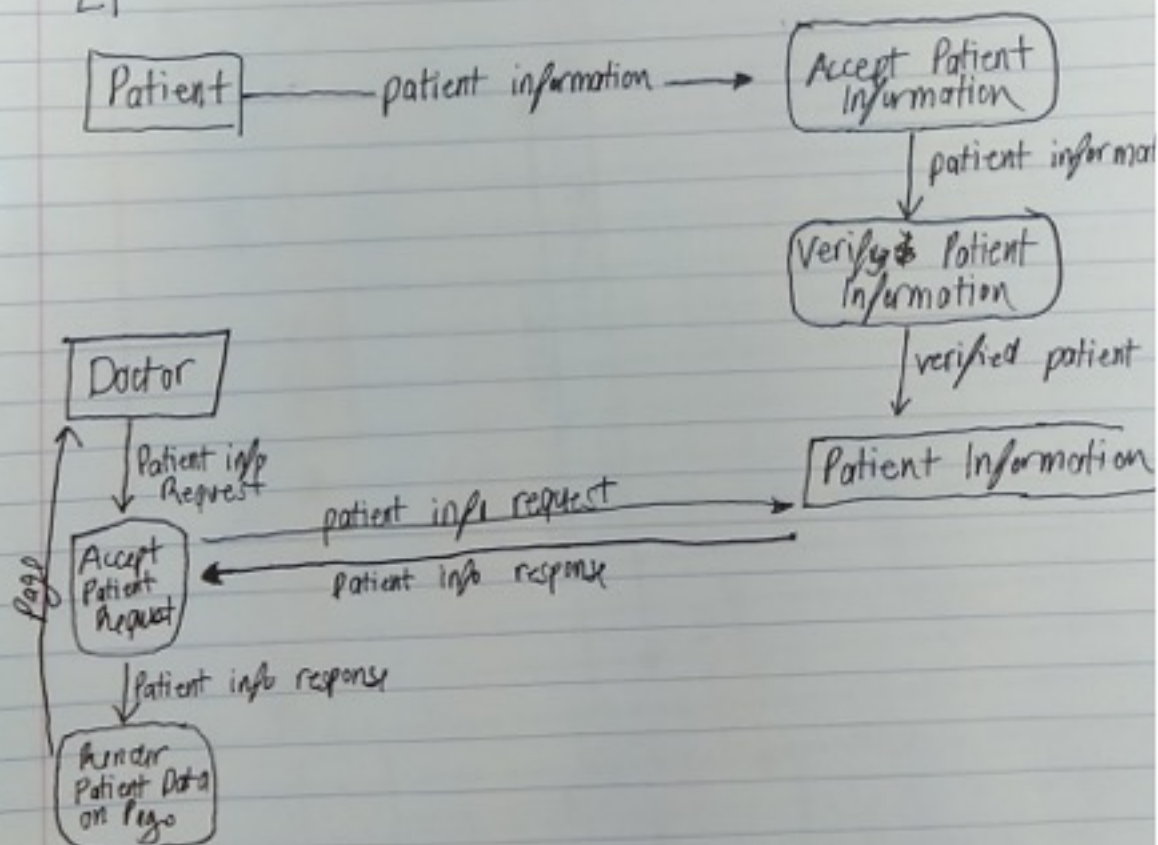 Patient
patient information
Accept Patient
Information
patient informat
Verify Patient
Information
verified patient
Doctor
Patient info
Request
Patient Information
patient info request
Patient info response
Accept
Patient
Request
Page
Patient info response
Render
Patient Data
on Page